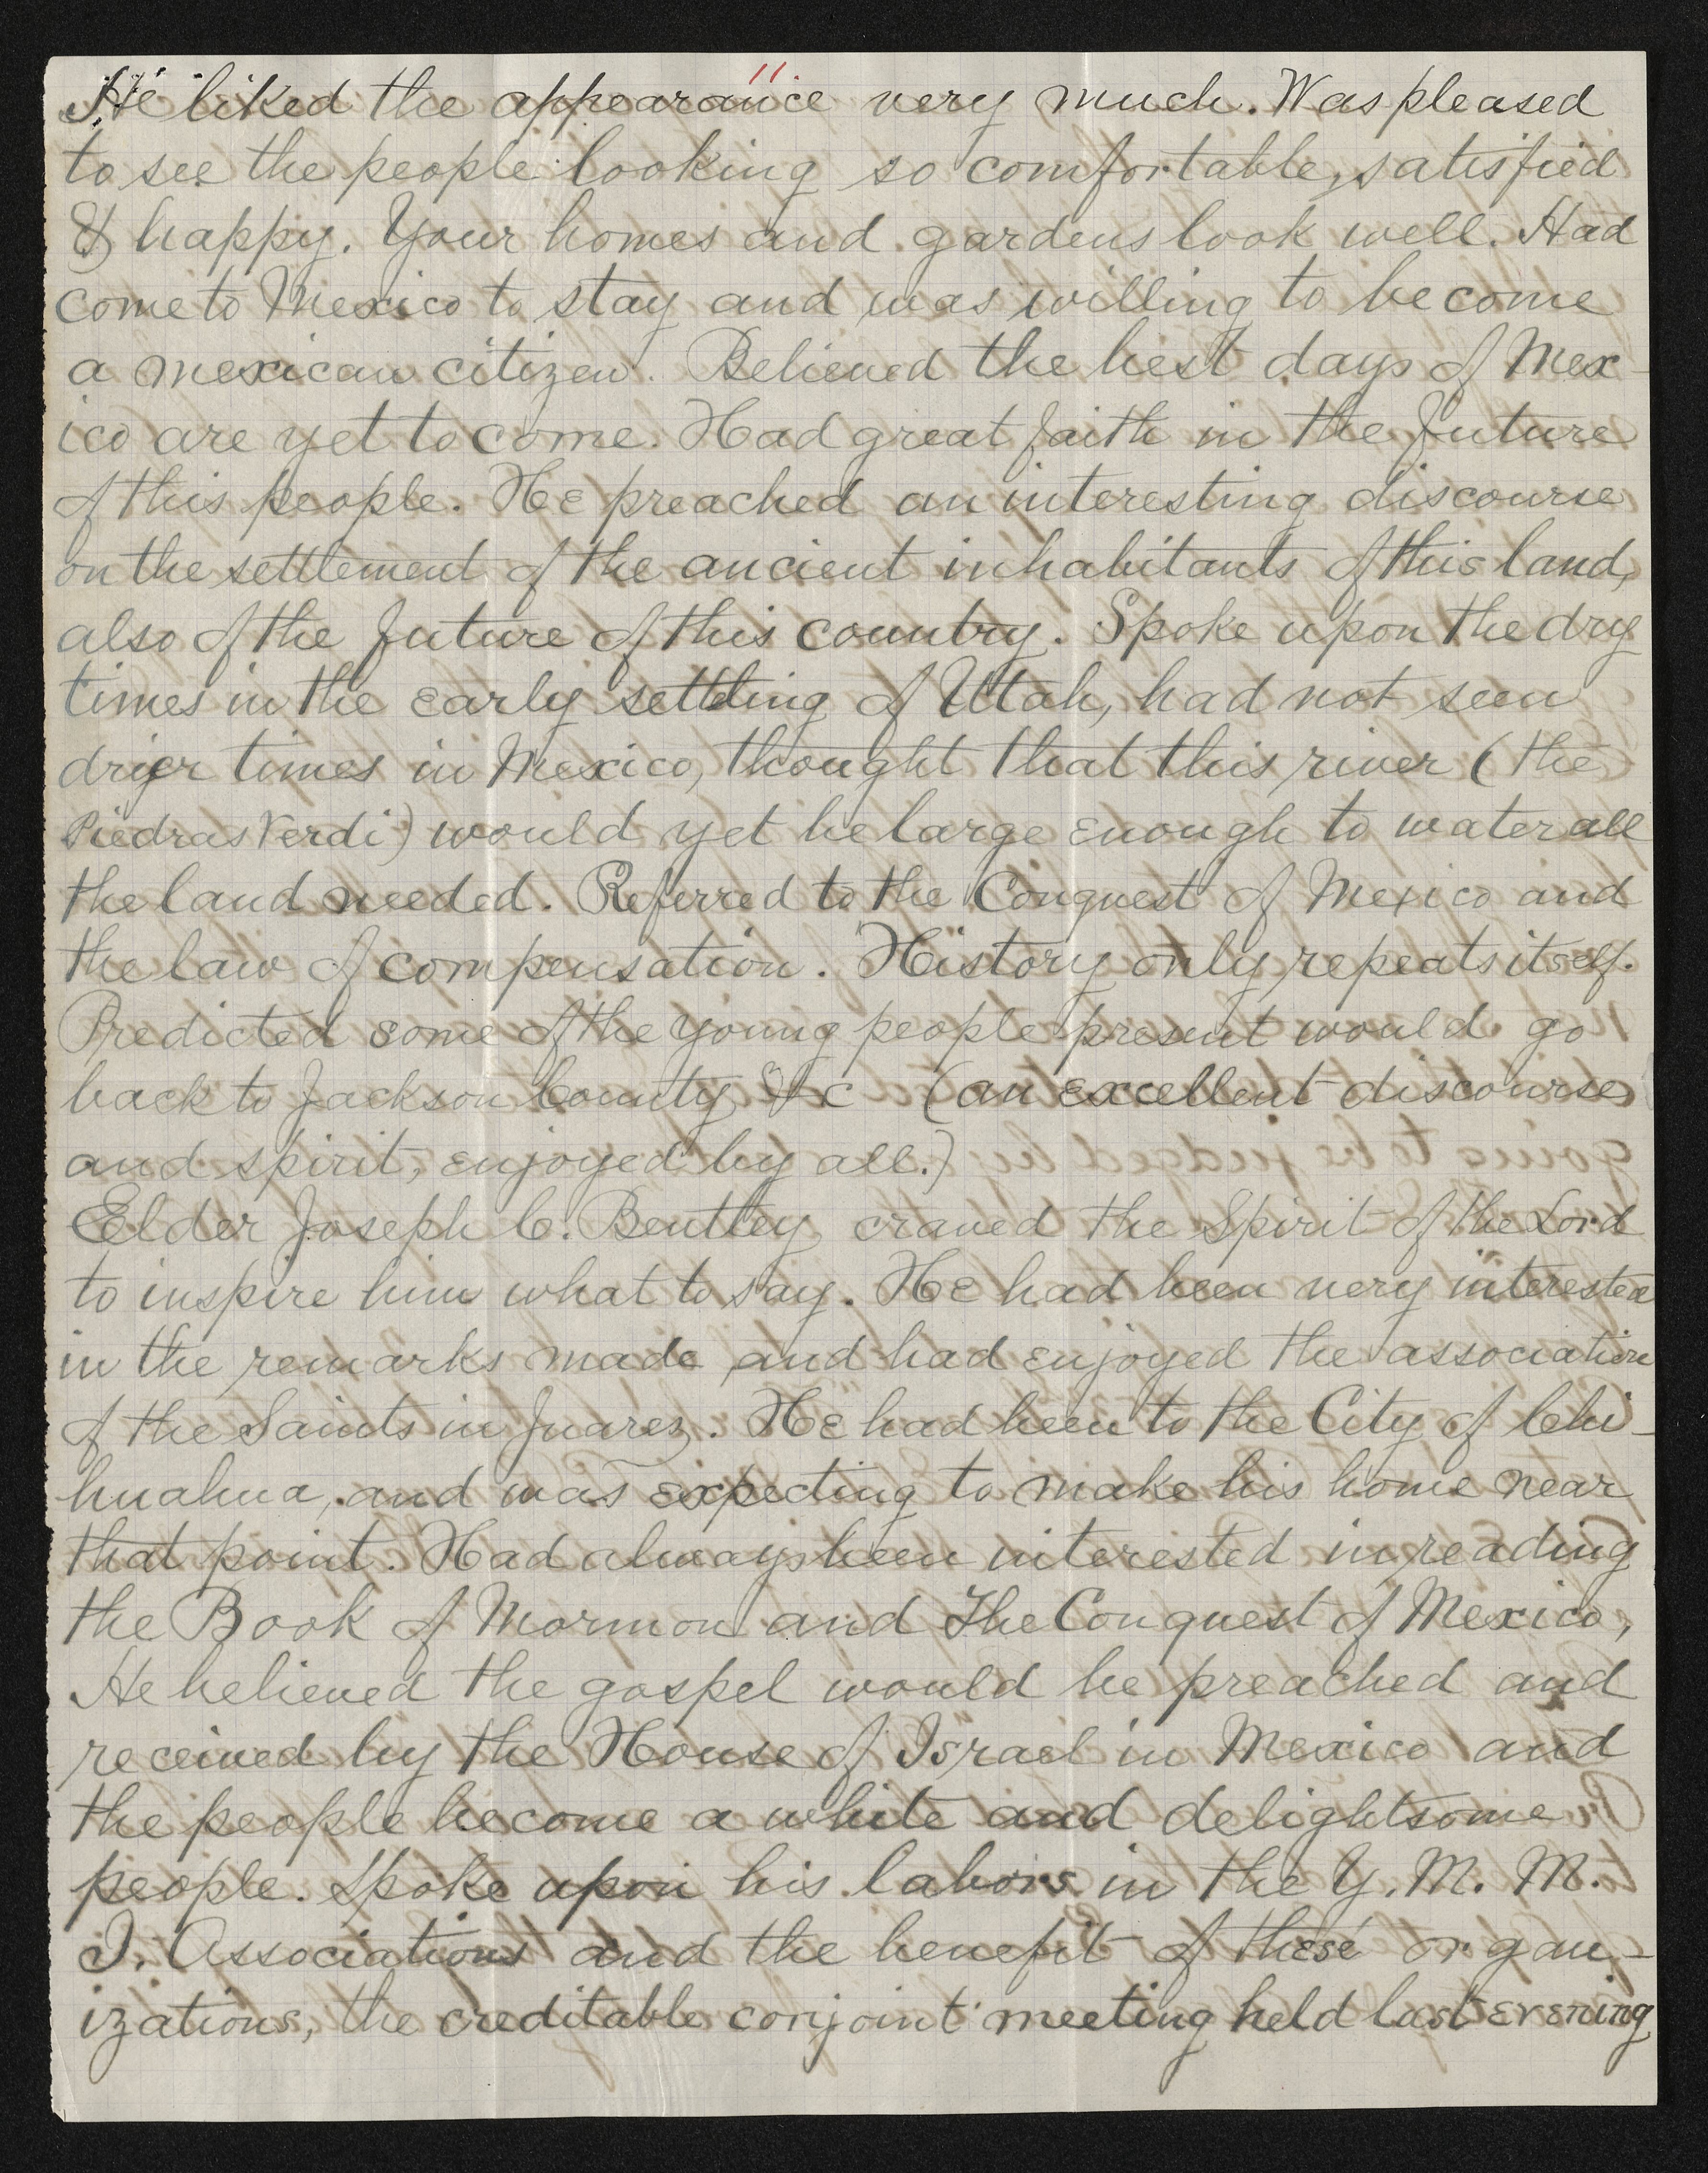 11
He liked the appearance very much. Was pleased
to see the people looking so comfortable, satisfied
& happy. Your homes and gardens look well. Had
come to Mexico to stay and was willing to become
a mexican citizen. Believed the best days of Mex-
ico are yet to come. Had great faith in the future
of this people. He preached an interesting discourse
on the settlement of the ancient inhabitants of this land,
also of the future of this country. Spoke upon the dry
times in the early settling of Utah, had not seen
drier times in Mexico, thought that this river (the
Piedras Verdi) would yet be large enough to water all
the land needed. Referred to the Conquest of Mexico and
the law of compensation. History only repeats itself.
Predicted some of the young people present would go
back to Jackson County &c (an excellent discourse
and spirit, enjoyed by all.)
Elder Joseph C. Bentley craved the Spirit of the Lord
to inspire him what to say. He had been very interested
in the remarks made and had enjoyed the association
of the Saints in Juarez. He had been to the City of Chi-
huahua, and was expecting to make his home near
that point. Had always been interested in reading
the Book of Mormon and The Conquest of Mexico,
He believed the gospel would be preached and
received by the House of Israel in Mexico and
the people become a white and delightsome
people. Spoke upon his labors in the Y. M. M.
I. Associations and the benefit of these organ-
izations, the creditable conjoint meeting held last evening